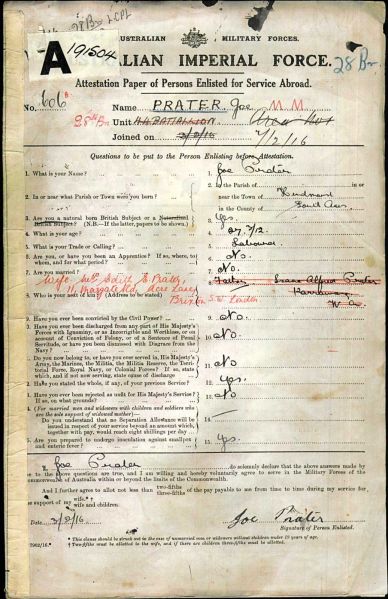 28 Bn L/CPL
A 19/504
AUSTRALIAN MILITARY FORCES.
ALIAN IMPERIAL FORCE.
28 Bn
Attestation Paper of Persons Enlisted for Service Abroad.
No. 606 Name PRATER, Joe M.M.
28th Bn Unit
Joined on 3/2/16 7/2/16
Questions to be put to the Person Enlisting before Attestation.
1. What is your Name? 1. Joe Prater
2. In or near what Parish or Town were you born? 2. In the Parish of in or
near the Town of
in the County of South Aus.
3. Are you a natural born British Subject or a Naturalised
British Subject? (N.B.—If the latter, papers to be shown) 3. Yes.
4. What is your age? 4. 27 7/12
5. What is your Trade or Calling? 5. Labourer
6. Are you, or have you been an Apprentice? If so, where, to
whom, and for what period? 6. No.
7. Are you married? 7. No
Wife Mrs Edith E Prater
Father Alfred Prater
8. Who is your next of kin? (Address to be stated)
Brixton S.W. London
W.A.
9. Have you ever been convicted by the Civil Power? 9. No.
10. Have you ever been discharged from any part of His Majesty's
Forces with Ignominy, or as Incorrigible and Worthless, or
on account of Conviction of Felony, or of a Sentence of Penal
Servitude, or have you been dismissed with Disgrace from the
Navy? 10. No
11. Do you now belong to, or have you ever served in, His Majesty's
Army, the Marines, the Militia, the Militia Reserve, the Territorial
Force, Royal Navy, or Colonial Forces? If so, state
which, and if not now serving, state cause of discharge 11. No
12. Have you stated the whole, if any, of your previous Service? 12. Yes.
13. Have you ever been rejected as unfit for His Majesty's Service? If
so, on what grounds? 13. No
14. (For married men and widowers with children and soldiers who
are the sole support of widowed mother)—
Do you understand that no Separation Allowance will be
issued in respect of your service beyond an amount which,
together with pay, would reach eight shillings per day
15. Are you prepared to undergo inoculation against smallpox
and enteric fever? 15. Yes.
I, Joe Prater do solemnly declare that the above answers made by
me to the above questions are true, and I am willing and hereby voluntarily agree to serve in the Military Forces of the
Commonwealth of Australia within or beyond the limits of the Commonwealth.
And I further agree to allot not less than two-fifths three-fifths of the pay payable to me from time to time during my service for
the support of my wife.*† wife and children.
Date 3/2/16 Joe Prater
Signature of Person Enlisted.
* This clause should be struck out in the case of unmarried men or widowers without children under 18 years of age.
† Two-fifths must be allotted to the wife, and if there are children three-fifths must be allotted.